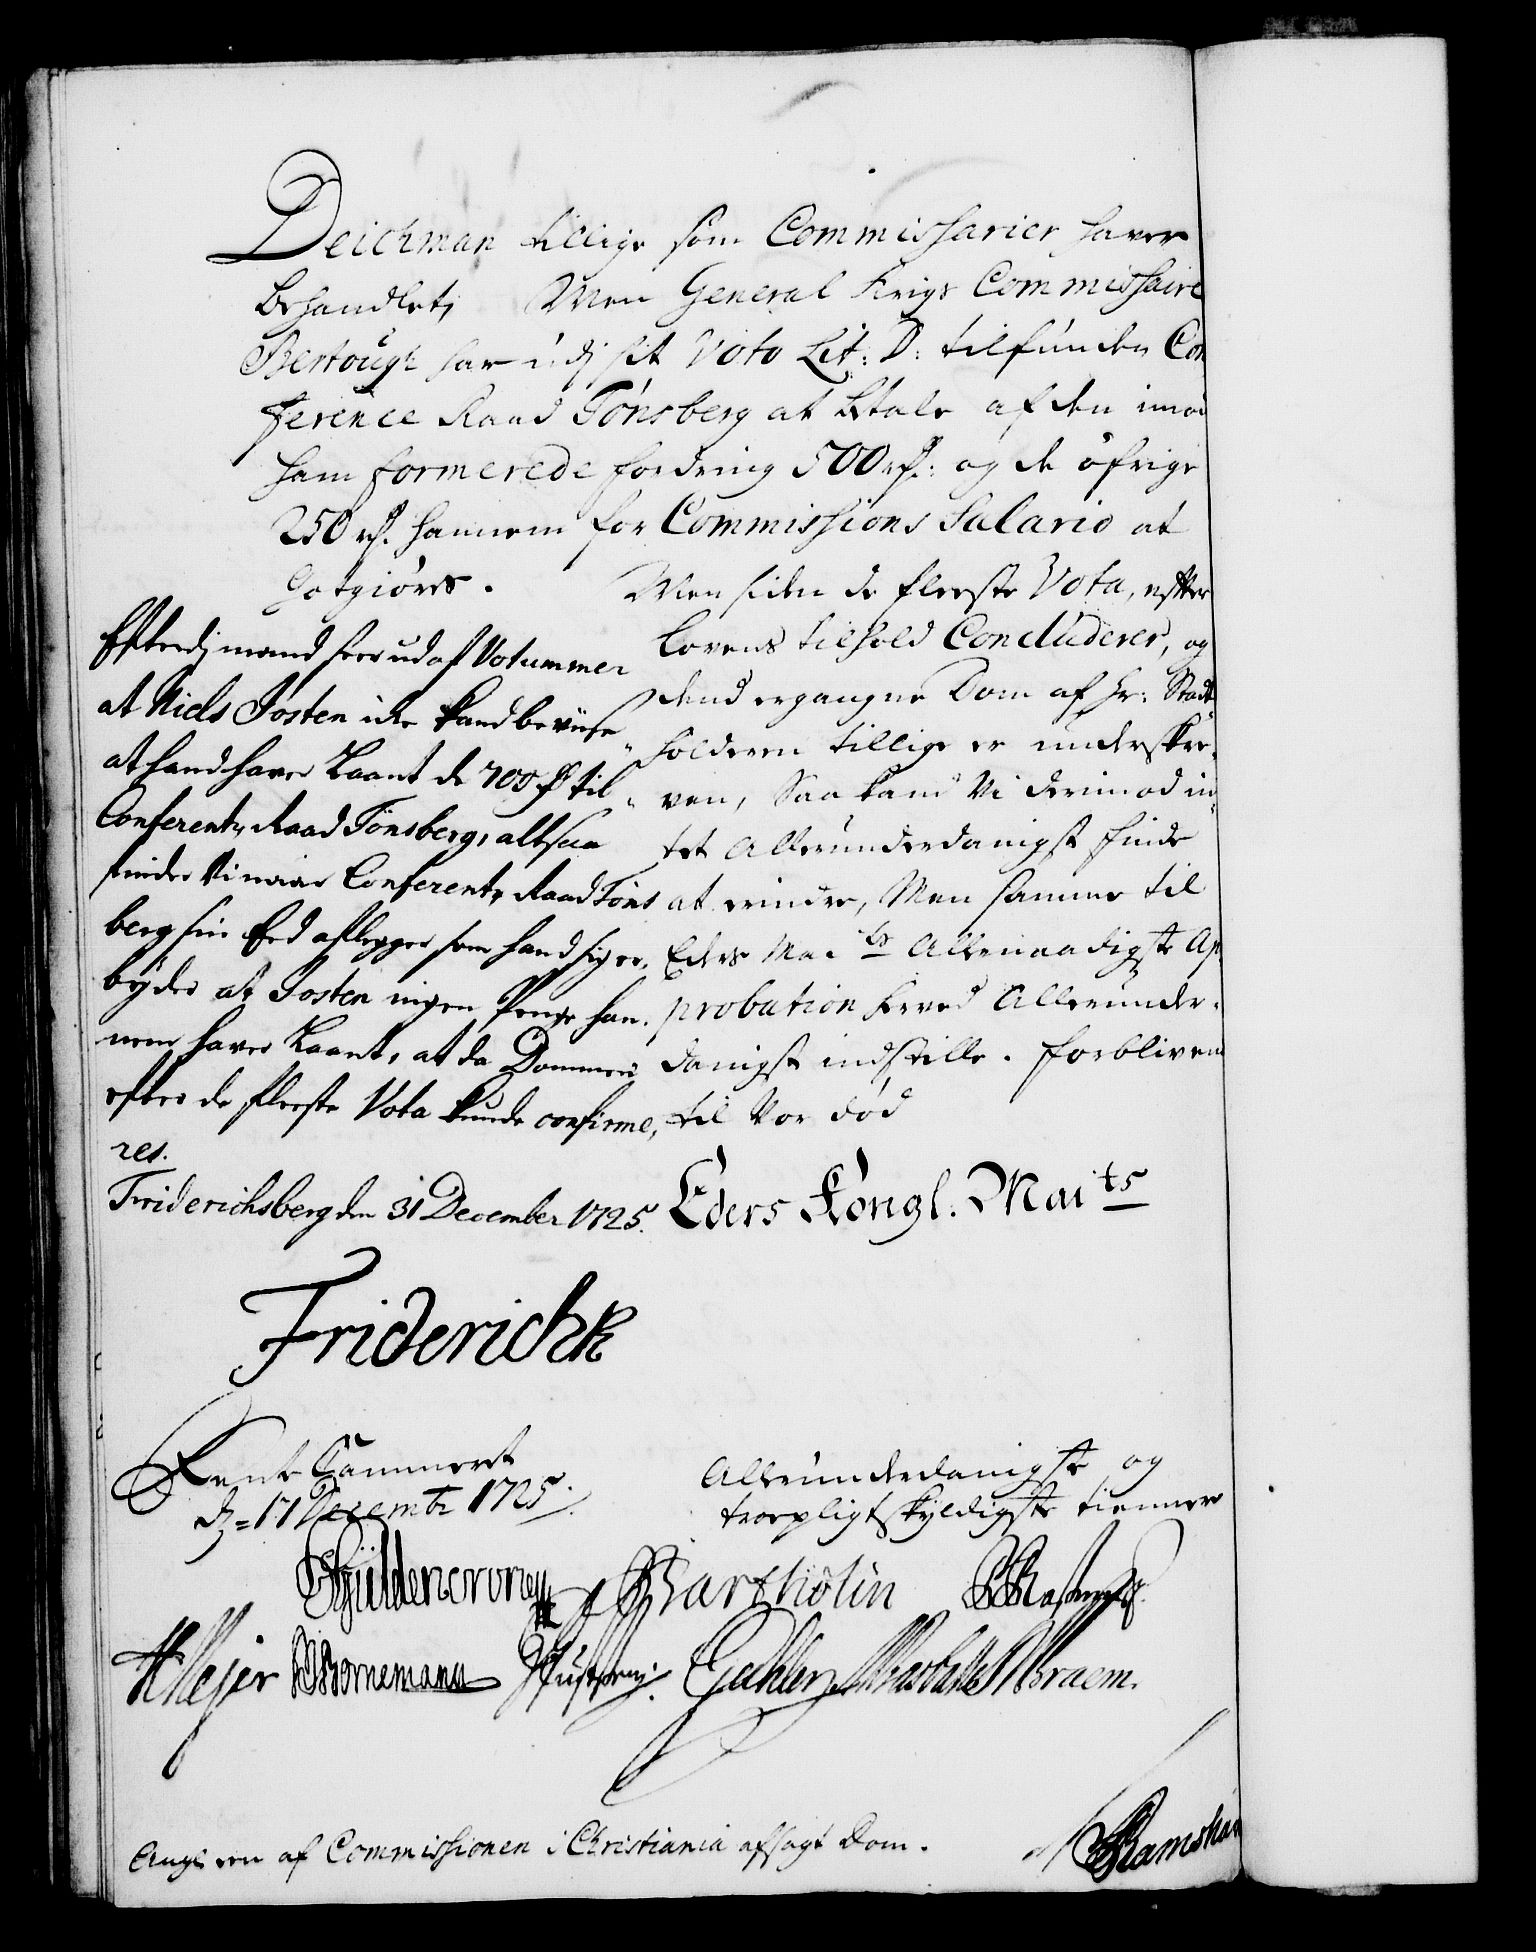 Deichman tillige som Commissarier haver
behandlet, Men General Krigs Commissaire
Bertough har udj sit Voto Lit: D: tilfunden Con
ference Raad Tønsberg at betale af den imod
ham formerede fordring 500 rd: og de öfrige
250 rd. hannem for Commissions Salario at
gotgiöres.
Men siden de fleeste Vota, efter
Lovens tilhold Concluderer, og
dend ergangne Dom af hr: Stadt
holderen tillige er underskre,
ven, Saa kand Vi derimod in,
tet Allerunderdanigst finde
at erindre, Men samme til
Eders Maits Allernaadigste Ap
probation herved Allerunder,
danigst indstille. forblivend
til Vor död
Eders Kongl. Maits
Efterdj mand seer ud af Votummer
at Niels Josten icke kand beviise
at hand haver Laant de 700 rd til
Conferents Raad Tönsberg, altsaa
finder Vi naar Conferents Raad Töns
berg sin Eed aflegger som hand sig er,
byder at Josten ingen Penge han,
nem haver Laant, at da Dommen
efter de fleeste Vota kunde confirme,
res.
Friderichsberg den 31 December 1725.
Friderich R
Rente Cammeret
dz = 17 Decembr 1725.
Allerunderdanigste og
troepligtskyldigste tiennere
CGüldencrone Bartholin
HMejer Bornemann Gahler Braem.
Ang: een af Commissionen i Christiania afsagt Dom.
Ramshart